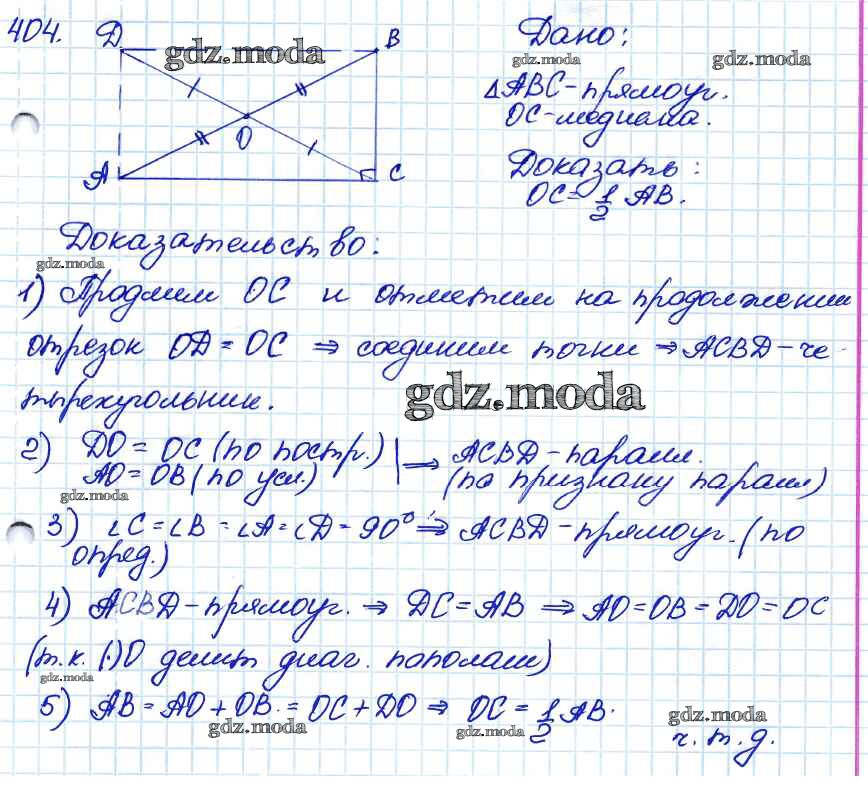 404.
D
B
O
A
C
Дано:
△ABC-прямоуг.
OC-медиана.
Доказать:
OC = 1/2 AB.
Доказательство:
1) Продлим OC и отметим на продолжении
отрезок OD = OC ⇒ соединим точки ⇒ ACBD - че-
тырехугольник.
2) DO = OC (по постр.)
AO = OB (по усл.)
⇒ ACBD - паралл.
(по признаку паралл)
3) ∠C = ∠B = ∠A = ∠D = 90° ⇒ ACBD - прямоуг. (по
опред.)
4) ACBD - прямоуг. ⇒ DC = AB ⇒ AO = OB = DO = OC
(т.к. (·)O делит диаг. пополам)
5) AB = AO + OB = OC + DO ⇒ OC = 1/2 AB.
ч.т.д.
gdz.moda
gdz.moda
gdz.moda
gdz.moda
gdz.moda
gdz.moda
gdz.moda
gdz.moda
gdz.moda
gdz.moda